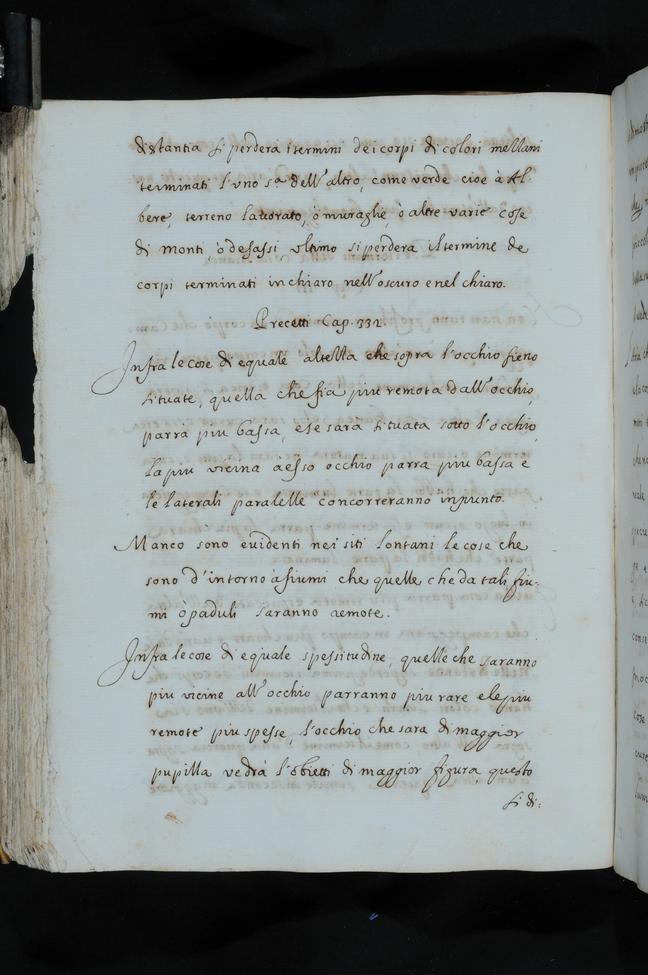 distantia si perdera i termini dei corpi di colori mezzani
terminati l'uno sª dell'altro, come verde cioè à Al-
bere, terreno lauorato, ò muraglie, ò altre varie cose
di monti, ò desassi ultimo si perdera il termine de
corpi terminati in chiaro nell'oscuro e nel chiaro.
Precetti Cap. 332.
Infra le cose di equale altezza che sopra l'occhio sieno
situate, quella che fia piu remota dall'occhio,
parra piu bassa, e se sara situata sotto l'occhio,
la piu vicina a esso occhio parra piu bassa e
le laterali paralelle concorreranno in punto.
Manco sono euidenti nei siti lontani le cose che
sono d'intorno à fiumi che quelle che da tali fiu-
mi ò paduli saranno remote.
Infra le cose di equale spessitudine, quelle che saranno
piu vicine all'occhio parranno piu rare e le piu
remote piu spesse, l'occhio che sara di maggior
pupilla vedrà l'obietti di maggior figura, questo
si di: